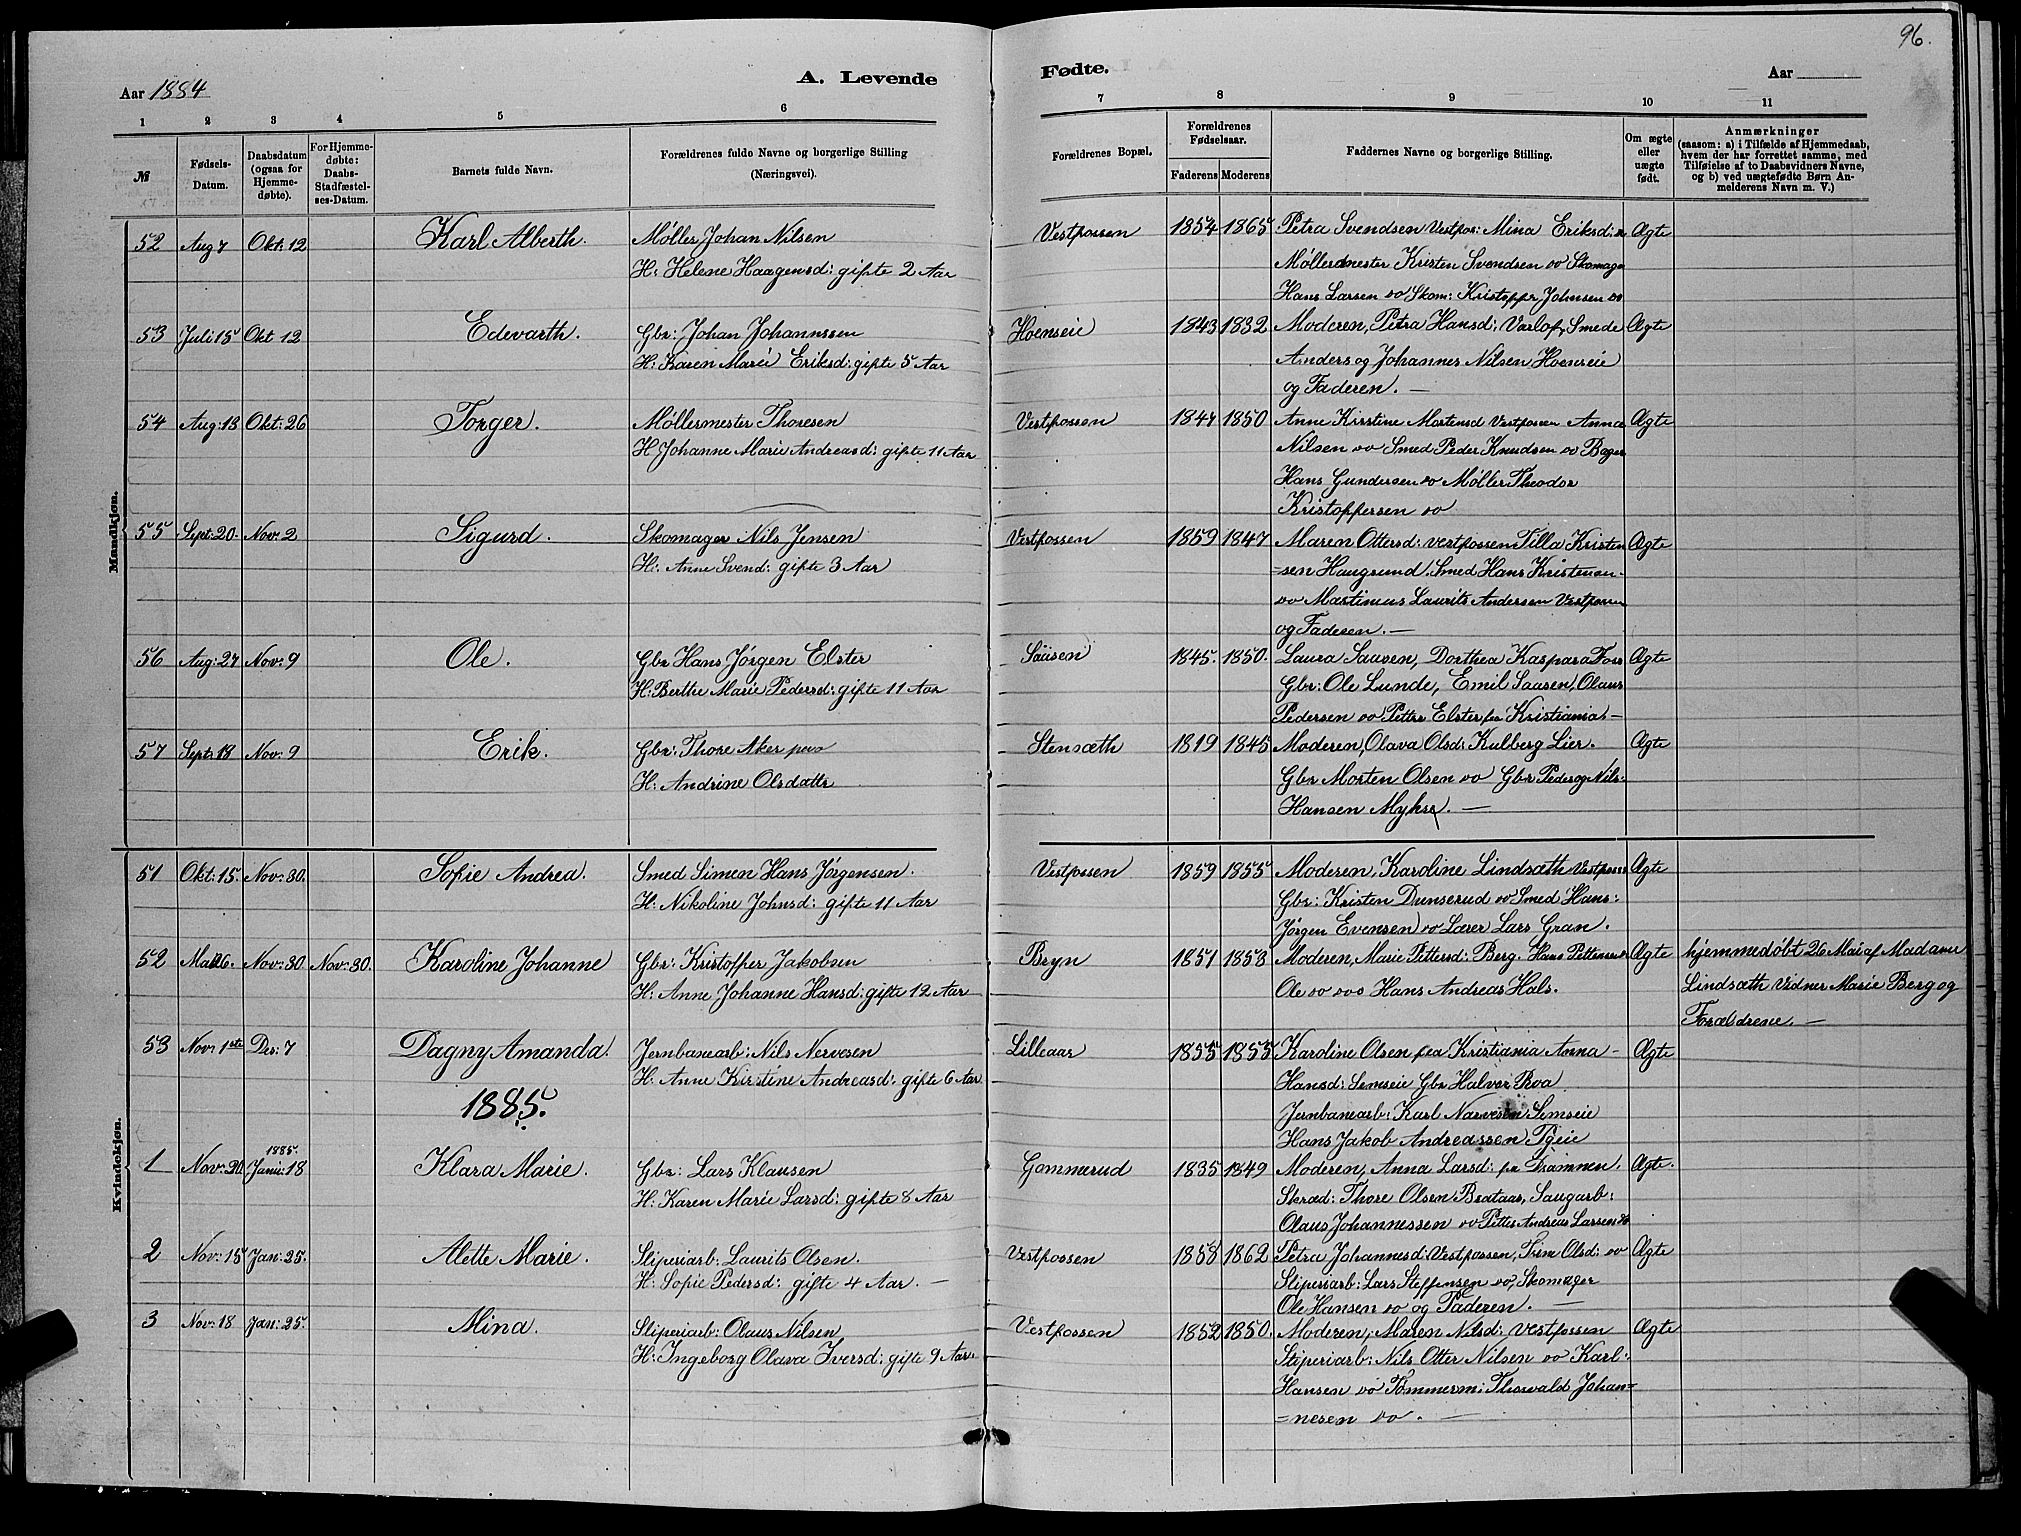 96.
Aar 1884
A. Levende
Fødte.
Aar
1 2 3 4 5 6 7 8 9 10 11
№
Fødsels-
Datum.
Daabsdatum
(ogsaa for
Hjemme-
døbte).
For Hjemme-
døbte:
Daabs-
Stadfæstel-
ses-Datum.
Barnets fulde Navn.
Forældrenes fulde Navne og borgerlige Stilling
(Næringsvei).
Forældrenes Bopæl.
Forældrenes
Fødselsaar.
Faderens Moderens
Faddernes Navne og borgerlige Stilling.
Om ægte
eller
uægte
født.
Anmærkninger
(saasom: a) i Tilfælde af Hjemmedaab,
hvem der har forrettet samme, med
Tilføielse af to Daabsvidners Navne,
og b) ved uægtefødte Børn An-
melderens Navn m. V.)
Mandkjøn.
52 Aug 7 Okt: 12 Karl Alberth. Møller Johan Nilsen Vestfossen 1854 1865 Petra Svendsen Vestfos: Mina Eriksd: Ægte
H: Helene Haagensd: gifte 2 Aar Møllermester Kristen Svendsen do Skomager
Hans Larsen do Skom: Kristoffer Johnsen do
53 Juli 15 Okt 12 Edevarth. Gbr: Johan Johannssen Hoenseie 1843 1832 Moderen, Petra Hansd: Varlof, Smede Ægte
H: Karen Marie Eriksd: gifte 5 Aar Anders og Johannes Nilsen Hoenseie
og Faderen. —
54 Aug: 13 Okt: 26 Torger. Møllermester Thoresen Vestfossen 1847 1850 Anne Kirstine Mortensd Vestfossen Anna Ægte
H Johanne Marie Andreasd: gifte 11 Aar Nilsen do Smed Peder Knudsen do Bager
Hans Gundersen do Møller Theodor
Kristoffersen do
55 Sept: 20. Nov: 2 Sigurd. Skomager Nils Jensen Vestfossen 1859 1847 Maren Ottersd: Vestfossen Tilla Kristen Ægte
H: Anne Svend: gifte 3 Aar =sen Haugsund. Smed Hans Kristensen
do Martinus Laurits Andersen Vestfossen
og Faderen. —
56 Aug: 27 Nov: 9 Ole. Gbr Hans Jørgen Elster Sausen 1845. 1850. Laura Sausen, Dorthea Kaspara Foss Ægte
H: Berthe Marie Pedersd: gifte 11 Aar Gbr: Ole Lunde, Emil Sausen, Olaus
Pedersen do Petter Elster fra Kristiania. —
57 Sept: 18 Nov: 9 Erik. Gbr: Thore Aker Stensæth 1819 1845 Moderen, Olava Olsd: Kulberg Lier. Ægte
H: Andrine Olsdatter Gbr Morten Olsen do Gbr Peder og Nils
Hansen Myhre. —
Kvindekjøn.
51 Okt: 15. Nov: 30. Sofie Andrea. Smed Simen Hans Jørgensen. Vestfossen 1859 1855 Moderen, Karoline Lindsæth Vestfossen Ægte
H: Nikoline Johnsd: gifte 11 Aar Gbr: Kristen Dunserud do Smed Hans:
Jørgen Evensen do Lærer Lars Gran.
52 Mai 26. Nov: 30 Nov: 30. Karoline Johanne Gbr: Kristoffer Jakobsen Bryn 1851 1853 Moderen, Marie Pettersd: Berg. Hans Pettersen do Ægte hjemmedøbt 26 Mai af Madame
H: Anne Johanne Hansd: gifte 12 Aar Ole do do Hans Andreas Hals. Lindsæth Vidner Marie Berg og
Forældrene. —
53 Nov: 1ste Des: 7 Dagny Amanda. Jernbanearb: Nils Nervesen Lilleaas 1855 1855 Karoline Olsen fra Kristiania Anna – Ægte
H: Anne Kirstine Andreasd: gifte 6 Aar Hansd: Semseie Gbr Halvor Roa
1885. Jernbanearb: Karl Narvesen Semseie
Hans Jakob Andreassen
1 Nov: 20. 1885. Janu: 18 Klara Marie. Gbr: Lars Klausen Gommerud 1835 1849 Moderen, Anna Larsd: fra Drammen. Ægte.
H: Karen Marie Larsd: gifte 8 Aar Skræd: Thore Olsen Braataas, Saugarb:
Olaus Johannessen do Petter Andreas Larsen do
2 Nov: 15 Jan: 25. Alette Marie. Sliperiarb: Laurits Olsen. Vestfossen 1858 1862 Petra Johannesd: Vestfossen, Trine Olsd: do Ægte
H: Sofie Pedersd: gifte 4 Aar. — Sliperiarb: Lars Steffensen do, Skomager
Ole Hansen do og Faderen. —
3 Nov: 18 Jan: 25. Mina. Sliperiarb: Olaus Nilsen Vestfossen 1852 1850. Moderen, Maren Nilsd: Vestfossen Ægte
H: Ingeborg Olava Iversd: gifte 9 Aar. Sliperiarb: Nils Otter Nilsen do Karl:
Hansen do Tømmerm: Thorvald Johan=
=nesen do. —